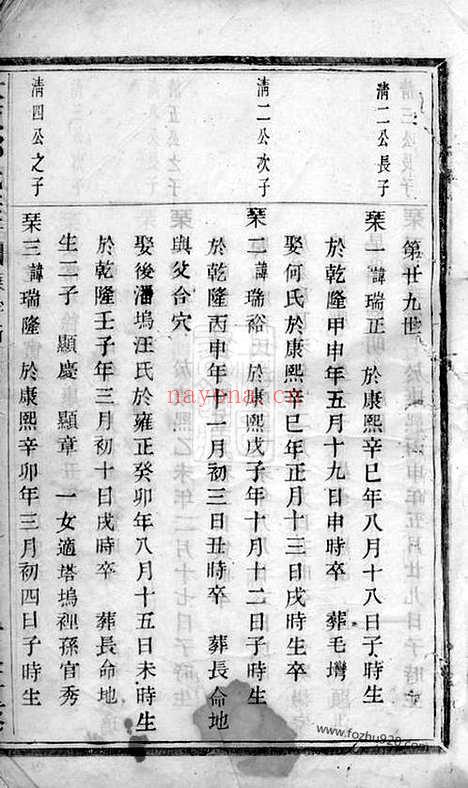 第廿九世
清二公長子
琹一 諱瑞正 於康熙辛巳年八月十八日子時生
於乾隆甲申年五月十九日申時卒 葬毛塆
娶何氏於康熙辛巳年正月十三日戌時生卒
清二公次子
琹二 諱瑞裕 於康熙戊子年十月十二日子時生
於乾隆丙申年十一月初三日丑時卒 葬長命地
與父合穴
娶後潘塢汪氏於雍正癸卯年八月十五日未時生
於乾隆壬子年三月初十日戌時卒 葬長命地
生二子 顯慶 顯章 一女適塔塢裡孫官秀
清四公之子
琹三 諱瑞隆 於康熙辛卯年三月初四日子時生
nayona.cn
www.fozhu920.com